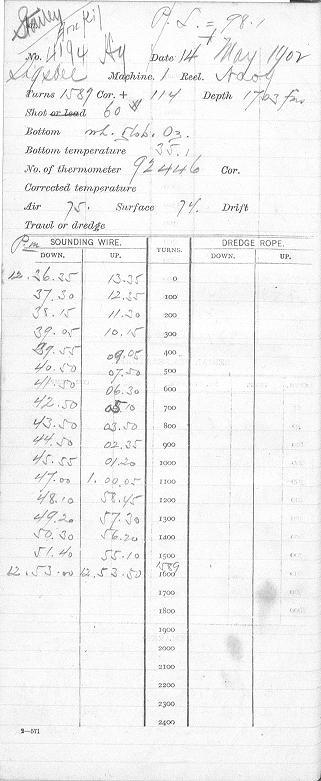 P. L. = 98.1
No. 4194 Hy Date 14 May 1902
Sigsbee Machine. 1 Reel.
Turns 1589 Cor. + 114 Depth 1703 fms
Shot or lead 60 #
Bottom wh. Glob. Oz.
Bottom temperature 35.1
No. of thermometer 92446 Cor.
Corrected temperature
Air 75. Surface 74. Drift
Trawl or dredge
P.m SOUNDING WIRE. TURNS. DREDGE ROPE.
DOWN. UP. DOWN. UP.
12.36.25 13.35 0
37.30 12.25 100
38.15 11.20 200
39.05 10.15 300
39.55 09.05 400
40.50 07.50 500
41.50 06.30 600
42.50 05.10 700
43.50 03.50 800
44.50 02.35 900
45.55 01.20 1000
47.00 1.00.05 1100
48.10 58.45 1200
49.20 57.30 1300
50.30 56.20 1400
51.40 55.10 1500
12.53.00 12.53.50 1589 1600
1700
1800
1900
2000
2100
2200
2300
2400
2—571